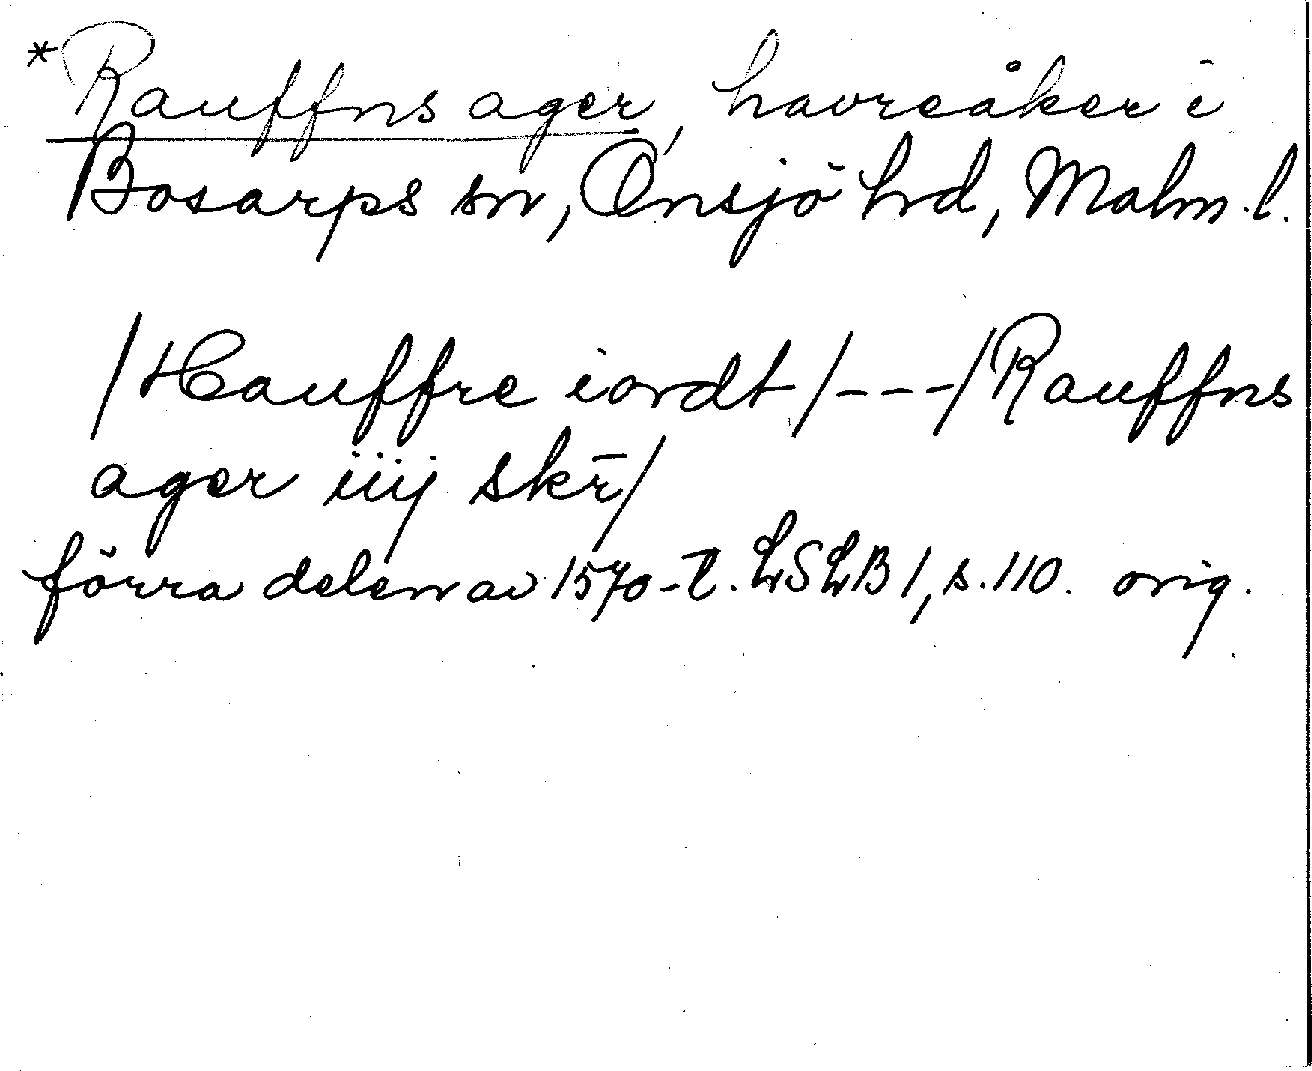 * Rauffns ager, havreåker i
Bosarps sn, Onsjö hd, Malm. l.
/Hauffre iordt/---/Rauffns
ager iiij skr̄/
förra delen av 1570-t. LSLB 1, s. 110. orig.